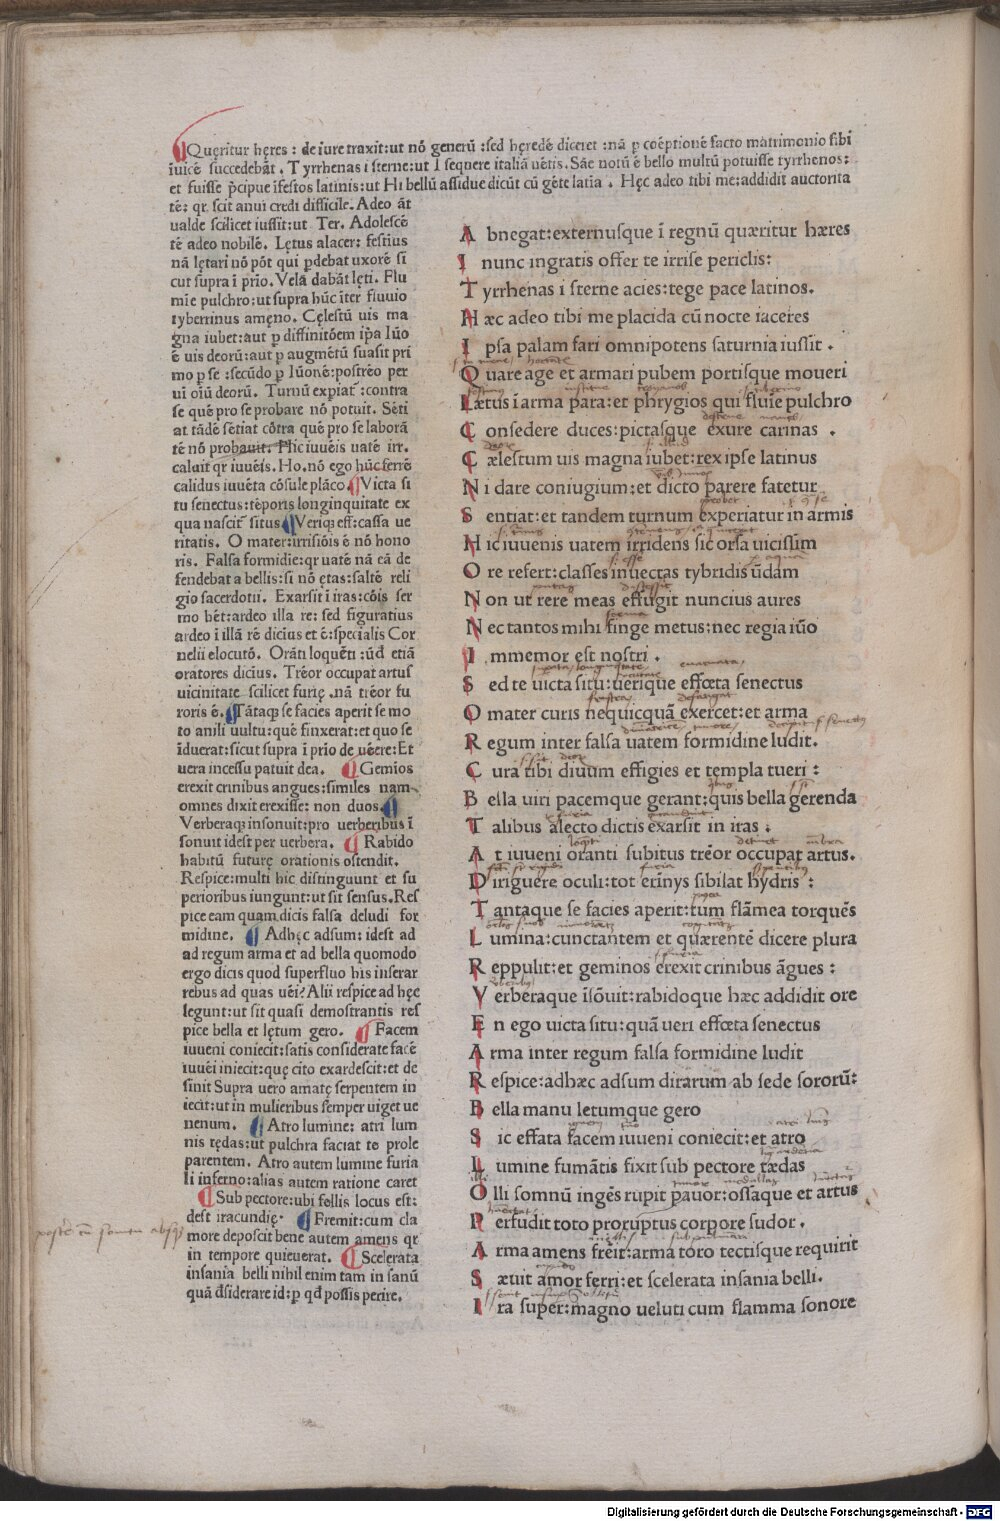 Quęritur hęres : de iure traxit:ut nō generū :sed hęredē diceret :nā p coēptionē facto matrimonio sibi
iuicē succedebāt . Tyrrhenas i sterne:ut I sequere italiā uētis. Sāe notū ē bello multū potuisse tyrrhenos:
et fuisse p̄cipue īfestos latinis:ut Hi bellū assidue dicūt cū gēte latīa . Hęc adeo tibi me:addidit auctorita
tē: qr scit anui credi difficile. Adeo āt
ualde scilicet iussit:ut Ter. Adolescē
tē adeo nobilē. Lętus alacer: festius
nā lętari nō pōt qui pdebat uxorē si
cut supra i prīo. Velā dabāt lęti. Flu
mīe pulchro:ut supra hūc īter fluuio
tyberinus amęno. Cęlestū uis ma
gna iubet:aut p diffinitōem ip̄a Iūo
ē uis deorū:aut p augmētū suasit pri
mo p se :secūdo p Iūonē:postrēo per
ui oīū deorū. Turnū expiat͛ :contra
se quē pro se probare nō potuit. Sēti
at tādē sētiat cōtra quē pro se laborā
tē nō probauit. Hic iuuēis uatē irr.
caluit qr iuuēis. Ho. nō ego hūc ferrē
calidus iuuēta cōsule plāco. Victa si
tu senectus:tēporis longinquitate ex
qua nascit͛ situs Veriq; eff: cassa ue
ritatis. O mater:irrisiōis ē nō hono
ris. Falsa formidie:qr uatē nā eā de
fendebat a bellis:si nō ętas:saltē reli
gio sacerdotii. Exarsit ī iras:cōis ser
mo hēt:ardeo illa re: sed figuratius
ardeo ī illā rē dicius et ē:specialis Cor
nelii elocutō. Orāti loquēti :ūd etiā
oratores dicius. Trēor occupat artus
uicinitate scilicet furię .nā trēor fu
roris ē. Tātaq; se facies aperit se mo
to anili uultu:quē finxerat:et quo se
īduerat:sicut supra ī prīo de uēere:Et
uera incessu patuit dea. Gemīos
erexit crinibus angues:similes nam
omnes dixit erexisse: non duos.
Verberaq; insonuit:pro uerberibus ī
sonuit idest per uerbera. Rabido
habitū futurę orationis ostendit.
Respice:multi hic distinguunt et su
perioribus iungunt:ut sit sensus. Res
pice eam quam dicis falsa deludi for
midine. Adhęc adsum: idest ad
ad regum arma et ad bella quomodo
ergo dicis quod superfluo his inserar
rebus ad quas uēi? Alii respice ad hęc
legunt:ut sit quasi demostrantis res
pice bella et lętum gero. Facem
iuueni coniecit:satis considerate facē
iuuēi iniecit:quę cito exardescit:et de
sinit Supra uero amatę serpentem in
iecit:ut in mulieribus semper uiget ue
nenum. Atro lumine: atri lum
nis tędas:ut pulchra faciat te prole
parentem. Atro autem lumine furia
li inferno:alias autem ratione caret
Sub pectore:ubi fellis locus est:
dest iracundię. Fremit:cum cla
more deposcit bene autem amens qr
in tempore quieuerat. Scelerata
insania belli nihil enim tam in sanū
quā d̄siderare id:p qd possis perire.
A bnegat:externusque ī regnū quæritur hæres
I nunc ingratis offer te irrise periclis:
T yrrhenas i sterne acies:tege pace latinos.
H æc adeo tibi me placida cū nocte iaceres
I psa palam fari omnipotens saturnia iussit .
Q uare age et armari pubem portisque moueri
L ætus ī arma para:et phrygios qui fluīe pulchro
C onsedere duces:pictasque exure carinas .
C ælestum uis magna iubet:rex ipse latinus
N i dare coniugium:et dicto parere fatetur
S entiat:et tandem turnum experiatur in armis
H ic iuuenis uatem irridens sic orsa uicissim
O re refert:classes inuectas tybridis ūdam
N on ut rere meas effugit nuncius aures
N ec tantos mihi finge metus:nec regia iūo
I mmemor est nostri .
S ed te uicta situ:uerique effœta senectus
O mater curis nequicquā exercet:et arma
R egum inter falsa uatem formidine ludit.
C ura tibi diuum effigies et templa tueri :
B ella uiri pacemque gerant:quis bella gerenda
T alibus alecto dictis exarsit in iras :
A t iuueni oranti subitus trēor occupat artus.
D iriguere oculi:tot erīnys sibilat hydris :
T antaque se facies aperit:tum flāmea torquēs
L umina:cunctantem et quærentē dicere plura
R eppulit:et geminos erexit crinibus āgues :
V erberaque īsōuit:rabidoque hæc addidit ore
E n ego uicta situ:quā ueri effœta senectus
A rma inter regum falsa formidine ludit
R espice:adhæc adsum dirarum ab sede sororū:
B ella manu letumque gero
S ic effata facem iuueni coniecit:et atro
L umine fumātis fixit sub pectore tædas
O lli somnū ingēs rupit pauor:ossaque et artus
P erfudit toto proruptus corpore sudor .
A rma amens frēit:arma toro tectisque requirit
S æuit amor ferri:et scelerata insania belli.
I ra super:magno ueluti cum flamma sonore
Digitalisierung gefördert durch die Deutsche Forschungsgemeinschaft - DFG